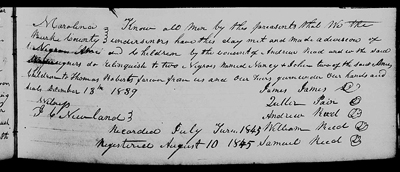 N Carolina } Know all men by these presents that We the
Burke County } undersigners have this day met and made a division of
Negroes and Children by the consent of Andrew Reed and We the said
signers do relinquish the two Negroes named Nancy & John to the said
children to Thomas Roberts forever from us and our heirs given under our hands and
seals December 18th 1839
Witness James James
J C Newland } Andrew Reed
Recorded July Term 1845 William Reed
Registered August 10 1845 Samuel Reed